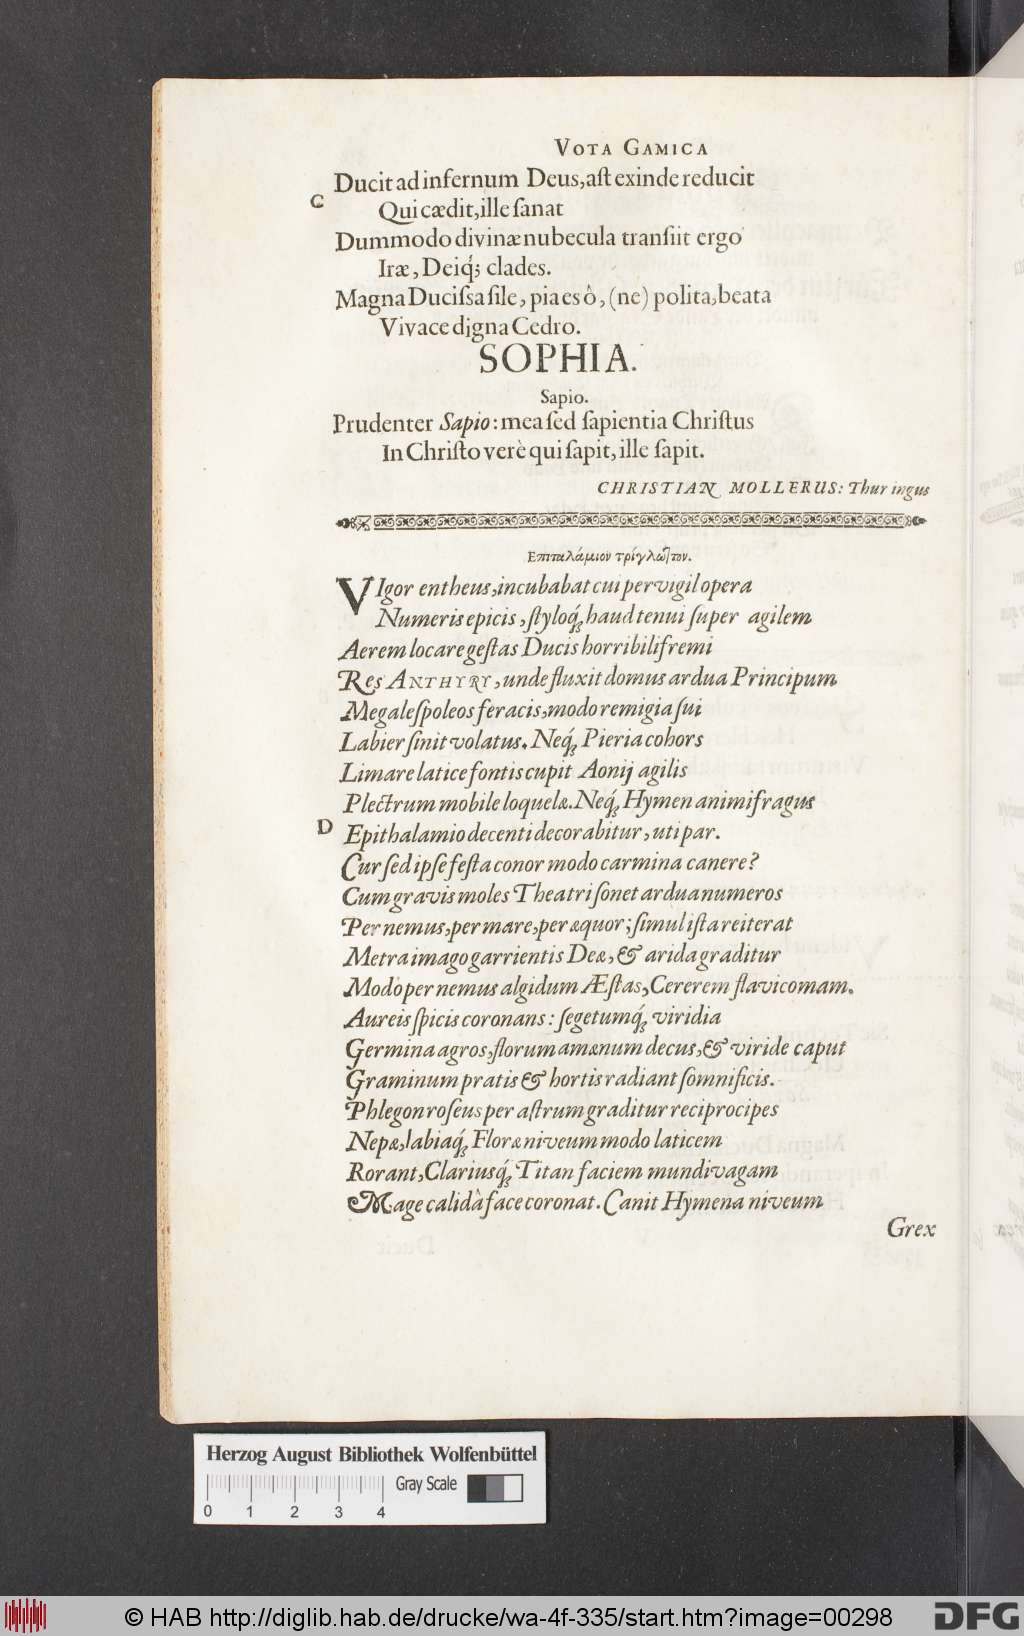 VOTA GAMICA
Ducit ad infernum Deus, aſt exinde reducit
C
Qui cædit, ille ſanat
Dummodo divinæ nubecula tranſiit ergo
Iræ, Deiq́; clades.
Magna Duciſsa ſile, pia es ô, (ne) polita, beata
Vivace digna Cedro.
SOPHIA.
Sapio.
Prudenter Sapio: mea ſed ſapientia Chriſtus
In Chriſto verè qui ſapit, ille ſapit.
CHRISTIAN MOLLERUS: Thuringus
Επιταλάμιον τρίγλωτ]ον.
VIgor entheus, incubabat cui pervigil opera
Numeris epicis, ſtyloq́; haud tenui ſuper agilem
Aerem locare geſtas Ducis horribili fremi
Res ANTHYRY, unde fluxit domus ardua Principum
Megaleſpoleos feracis, modo remigia ſui
Labier ſinit volatus. Neq́; Pieria cohors
Limare latice fontis cupit Aonij agilis
Plectrum mobile loquelæ. Neq́; Hymen animifragus
D
Epithalamio decenti decorabitur, uti par.
Cur ſed ipſe feſta conor modo carmina canere?
Cum gravis moles Theatri ſonet ardua numeros
Per nemus, per mare, per æquor; ſimul iſta reiterat
Metra imago garrientis Deæ, & arida graditur
Modo per nemus algidum Æſtas, Cererem flavicomam.
Aureis ſpicis coronans: ſegetumq́; viridia
Germina agros, florum amænum decus, & viride caput
Graminum pratis & hortis radiant ſomnificis.
Phlegon roſeus per aſtrum graditur reciprocipes
Nepæ, labiaq́; Floræ niveum modo laticem
Rorant, Clariusq́; Titan faciem mundivagam
Mage calidà face coronat. Canit Hymena niveum
Grex
Herzog August Bibliothek Wolfenbüttel
Gray Scale
0 1 2 3 4
© HAB http://diglib.hab.de/drucke/wa-4f-335/start.htm?image=00298
DFG